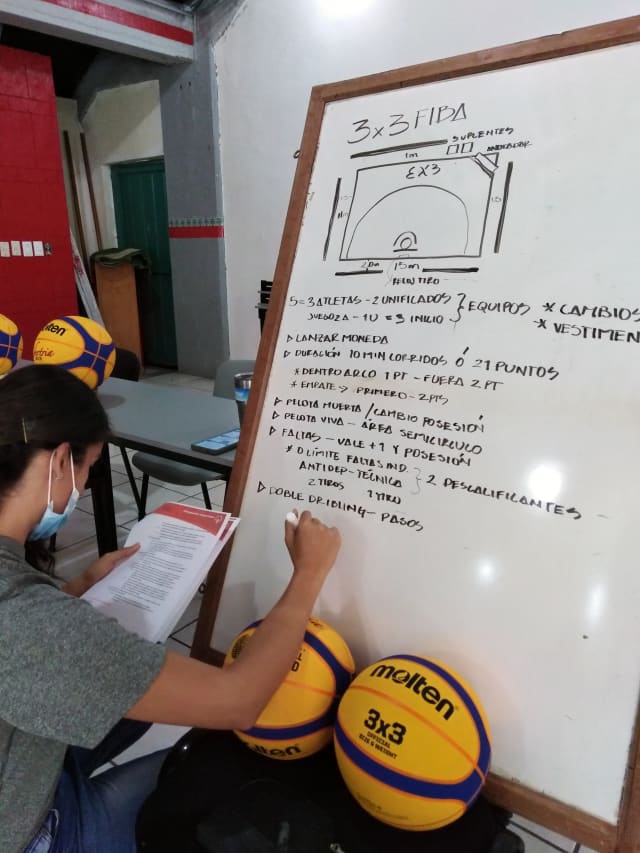 3x3 FIBA
SUPLENTES
ANOTADOR
1m
3X3
15m
5 = 3 ATLETAS - 2 UNIFICADOS } EQUIPOS * CAMBIOS
- 1U = 3 INICIO * VESTIMEN
▷ LANZAR MONEDA
▷ DURACIÓN 10 MIN CORRIDOS Ó 21 PUNTOS
* DENTRO ARCO 1 PT - FUERA 2 PT
* EMPATE → PRIMERO - 2 PTS
▷ PELOTA MUERTA / CAMBIO POSESIÓN
▷ PELOTA VIVA - ÁREA SEMICÍRCULO
▷ FALTAS - VALE + 1 Y POSESIÓN
* 0 LÍMITE FALTAS IND.
ANTIDEP - TÉCNICA } 2 DESCALIFICANTES
2 TIROS 1 TIRO
▷ DOBLE DRIBLING - PASOS
molten
molten
molten
3x3
OFFICIAL
SIZE & WEIGHT